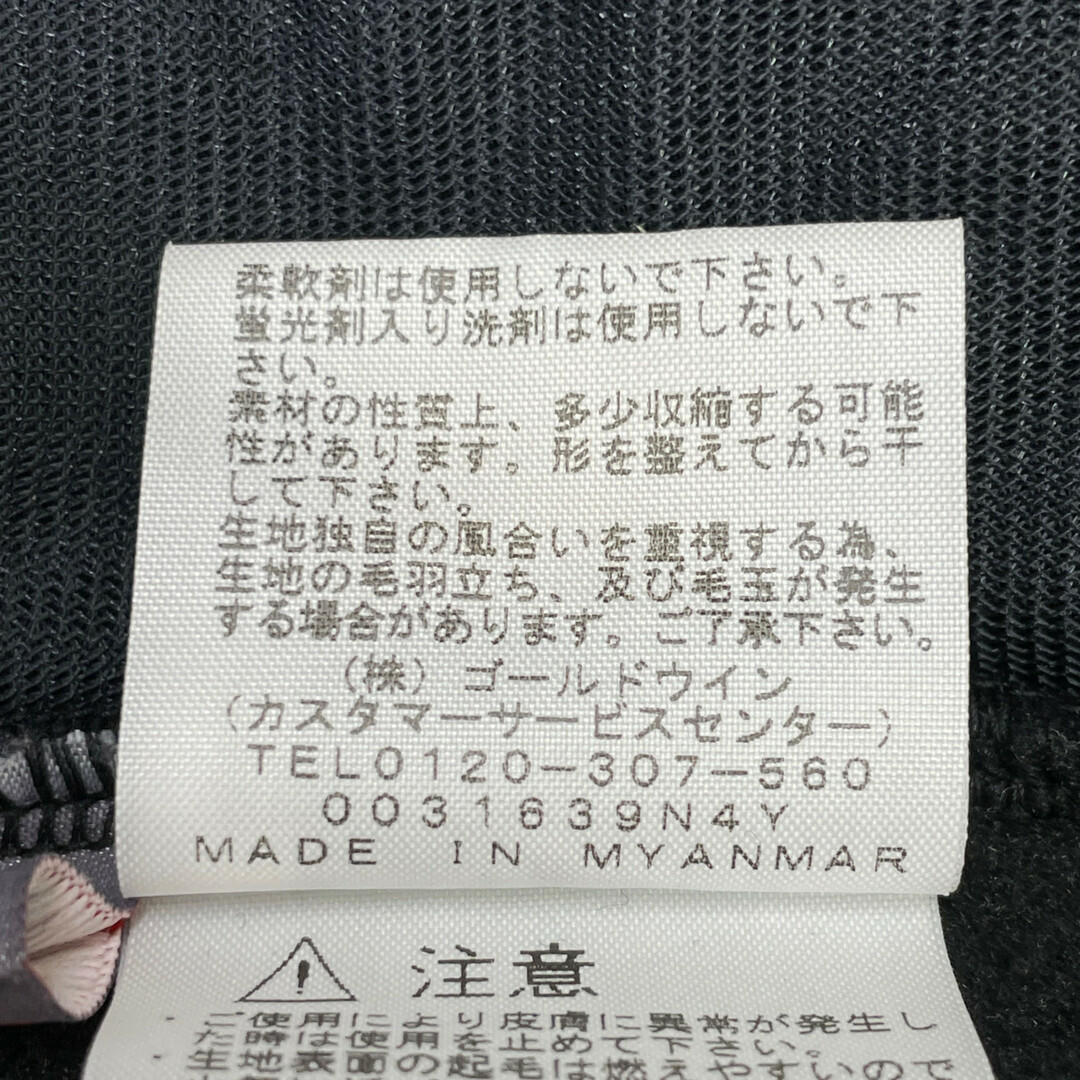 柔軟剤は使用しないで下さい。
蛍光剤入り洗剤は使用しないで下
さい。
素材の性質上、多少収縮する可能
性があります。形を整えてから干
して下さい。
生地独自の風合いを重視する為、
生地の毛羽立ち、及び毛玉が発生
する場合があります。ご了承下さい。
(株)ゴールドウイン
(カスタマーサービスセンター)
TEL0120-307-560
0031639N4Y
MADE IN MYANMAR
注意
・ご使用により皮膚に異常が発生し
た時は使用を止めて下さい。
・生地表面の起毛は燃えやすいので